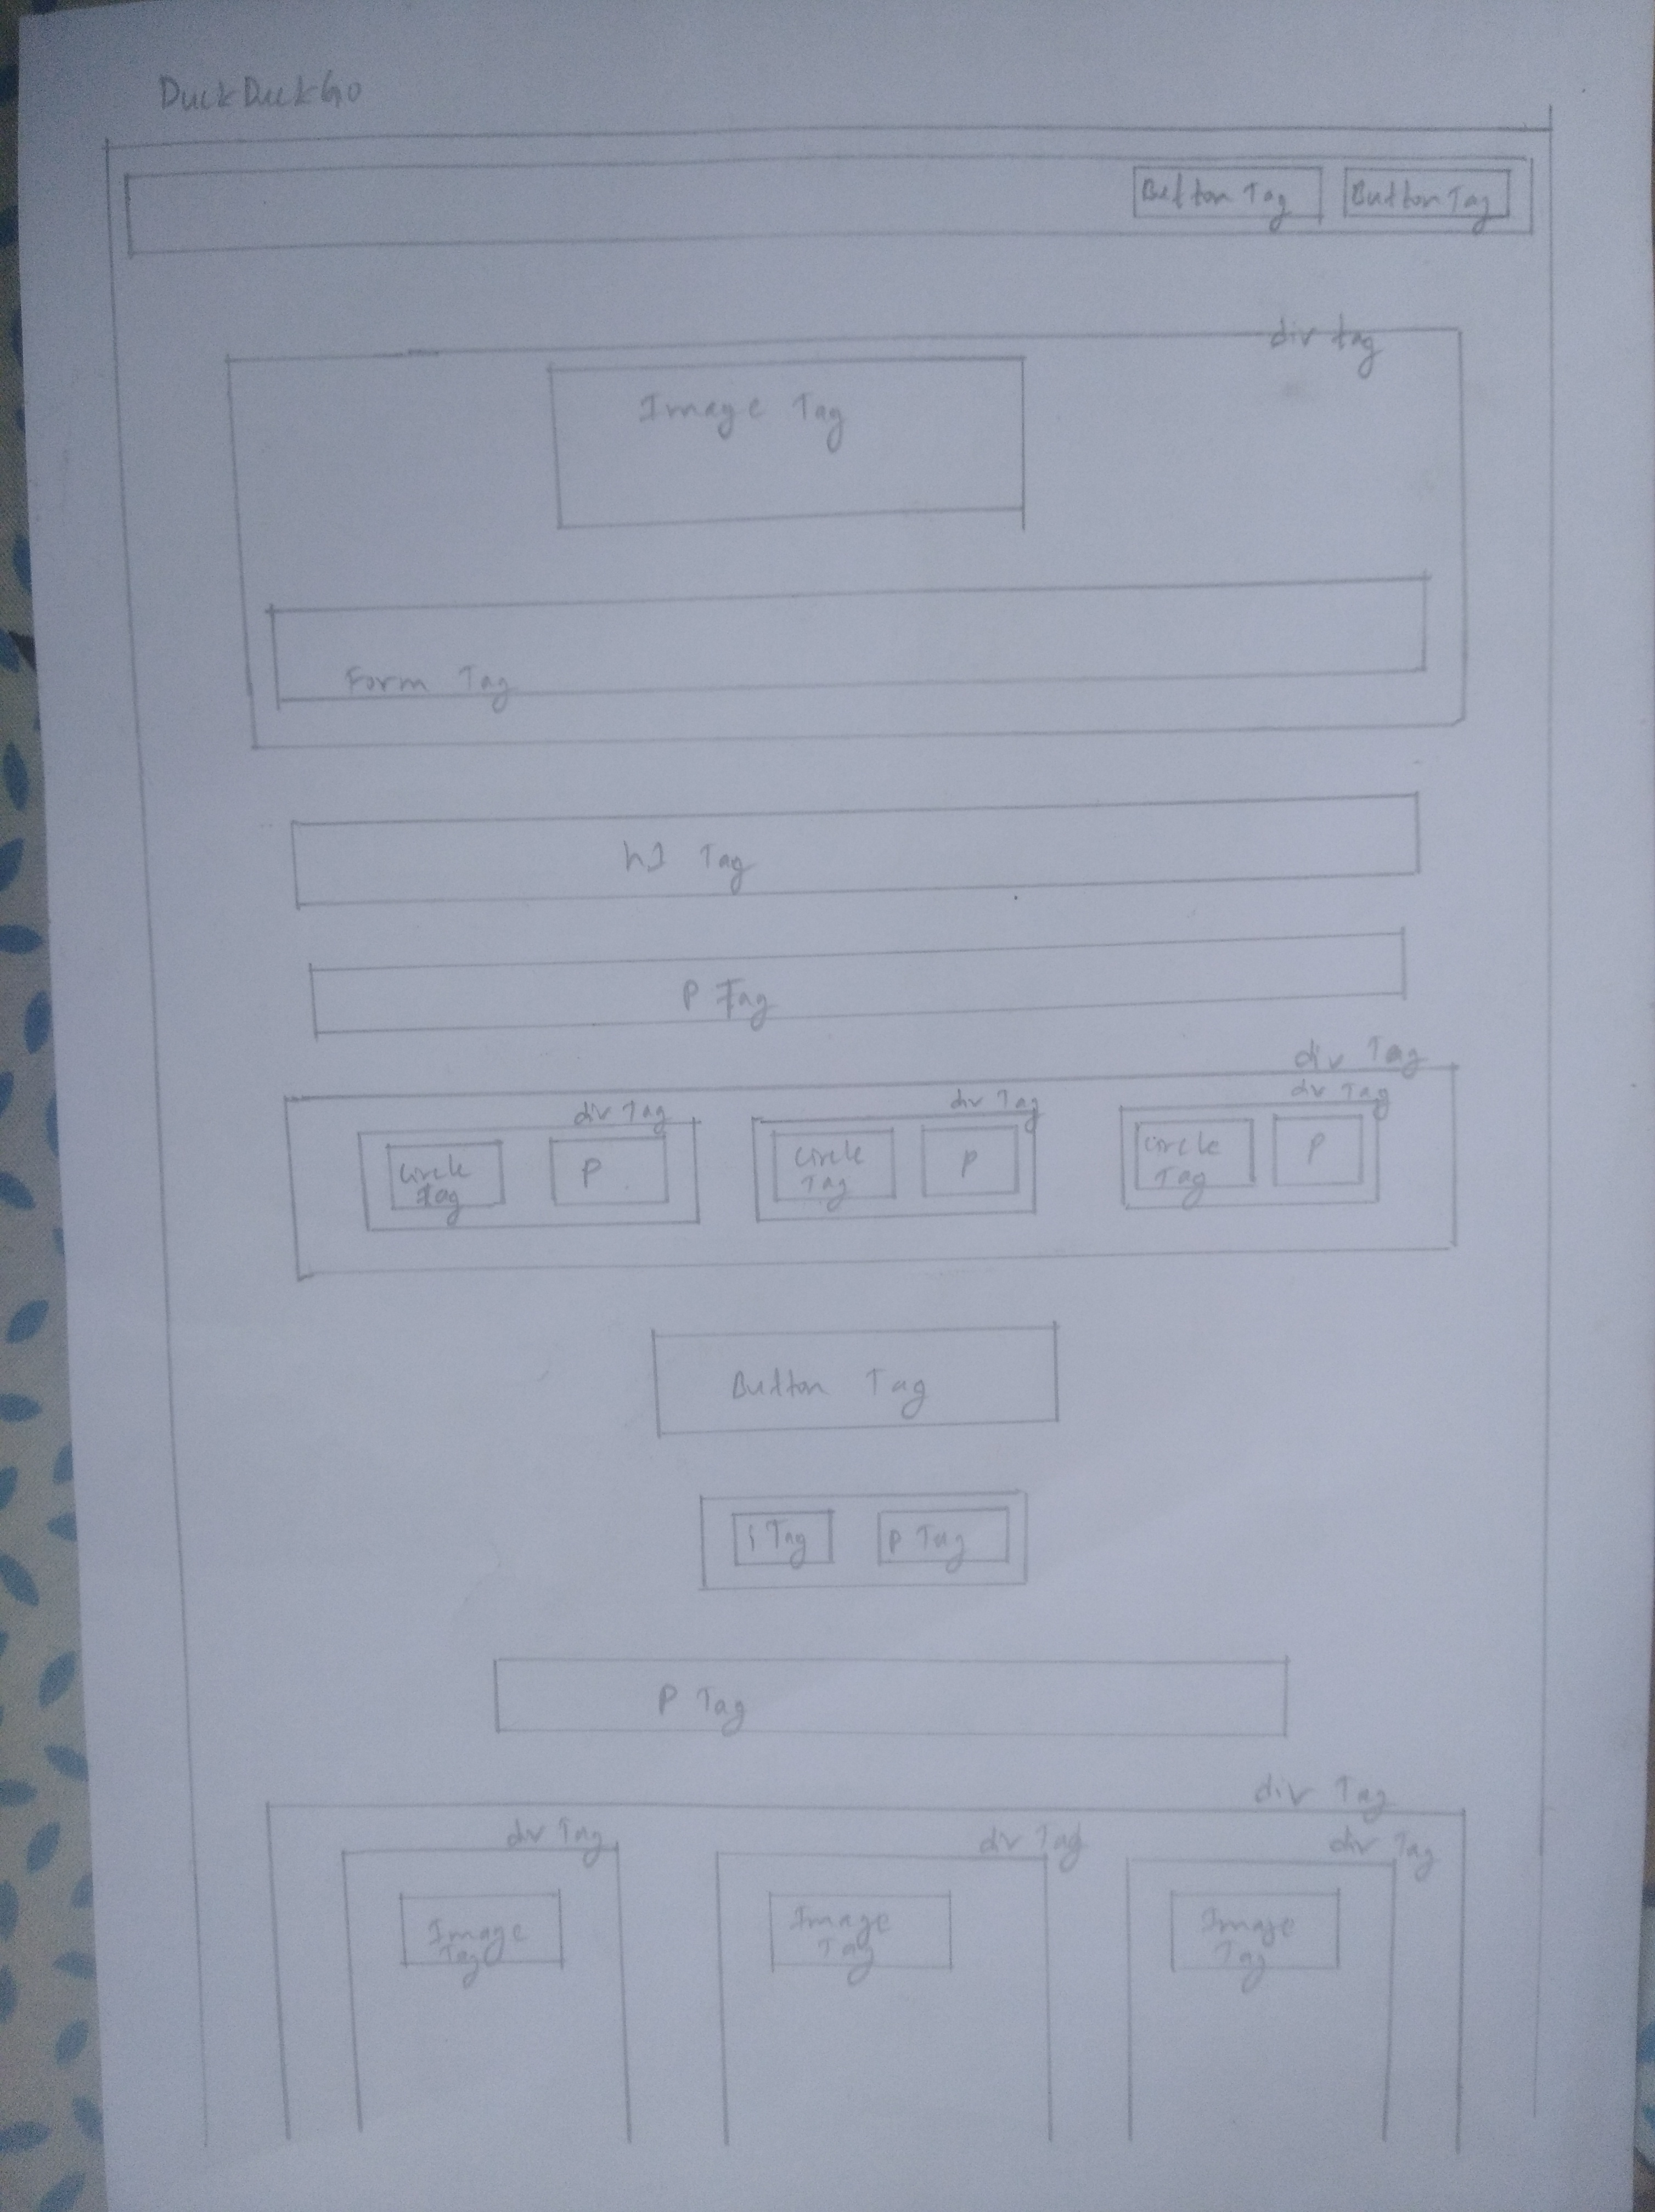 DuckDuckGo
Button Tag
Button Tag
div tag
Image Tag
Form Tag
h1 Tag
P Tag
div Tag
div Tag
div Tag
div Tag
Circle
Tag
P
Circle
Tag
P
Circle
Tag
P
Button Tag
i Tag
P Tag
P Tag
div Tag
div Tag
div Tag
div Tag
Image
Tag
Image
Tag
Image
Tag